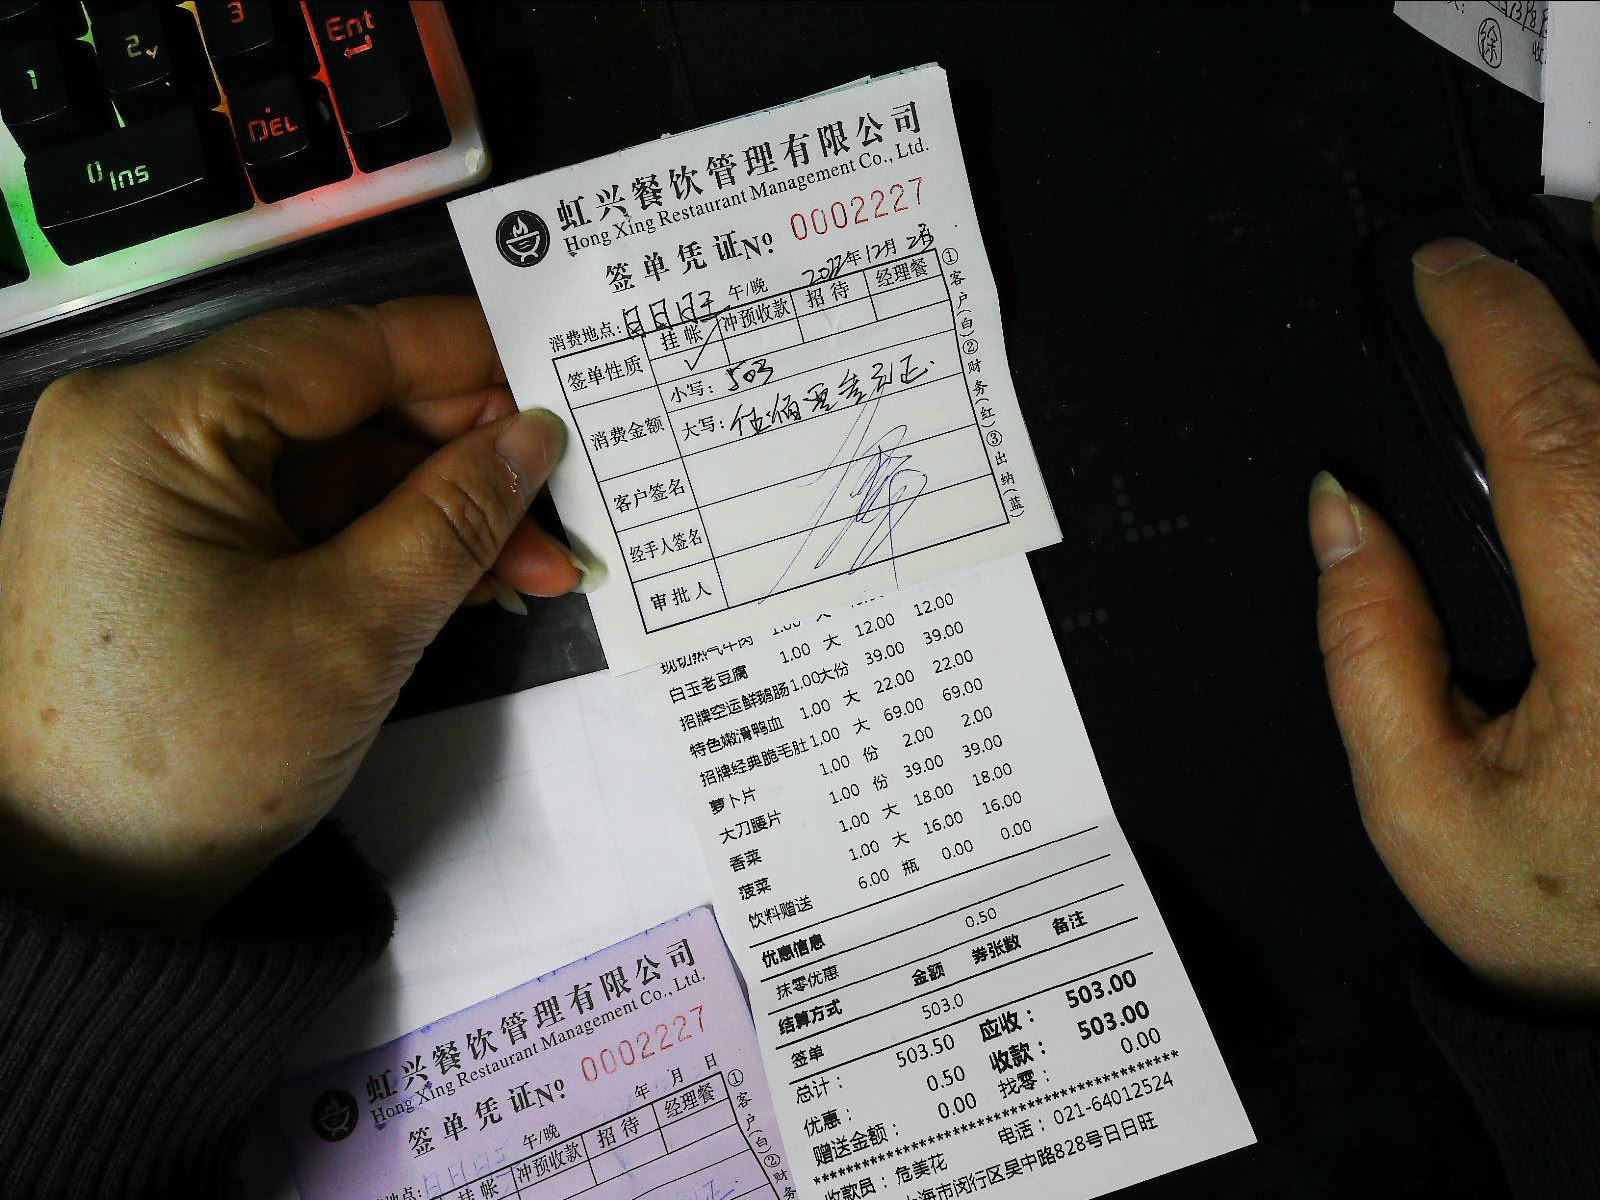 1
2
3
Ent
0 Ins
DEL
徐
虹兴餐饮管理有限公司
Hong Xing Restaurant Management Co., Ltd.
签单凭证 No. 0002227
消费地点：日日旺 午/晚 2022年12月
签单性质 挂帐 冲预收款 招待 经理餐
✓
消费金额 小写：503
大写：伍佰零叁元正
客户签名
经手人签名
审批人
①客户(白)②财务(红)③出纳(蓝)
现切热气牛肉 1.00 大
白玉老豆腐 1.00 大 12.00 12.00
招牌空运鲜鹅肠 1.00 大份 39.00 39.00
特色嫩滑鸭血 1.00 大 22.00 22.00
招牌经典脆毛肚 1.00 大 69.00 69.00
萝卜片 1.00 份 2.00 2.00
大刀腰片 1.00 份 39.00 39.00
香菜 1.00 大 18.00 18.00
菠菜 1.00 大 16.00 16.00
饮料赠送 6.00 瓶 0.00 0.00
优惠信息
抹零优惠 0.50
结算方式 金额 券张数 备注
签单 503.0
总计： 503.50 应收： 503.00
优惠： 0.50 收款： 503.00
赠送金额： 0.00 找零： 0.00
****************************************
收款员：危美花 电话：021-64012524
上海市闵行区吴中路828号日日旺
虹兴餐饮管理有限公司
Hong Xing Restaurant Management Co., Ltd.
签单凭证 No. 0002227
年 月 日
消费地点：日日旺 午/晚
挂帐 冲预收款 招待 经理餐
①客户(白)②财